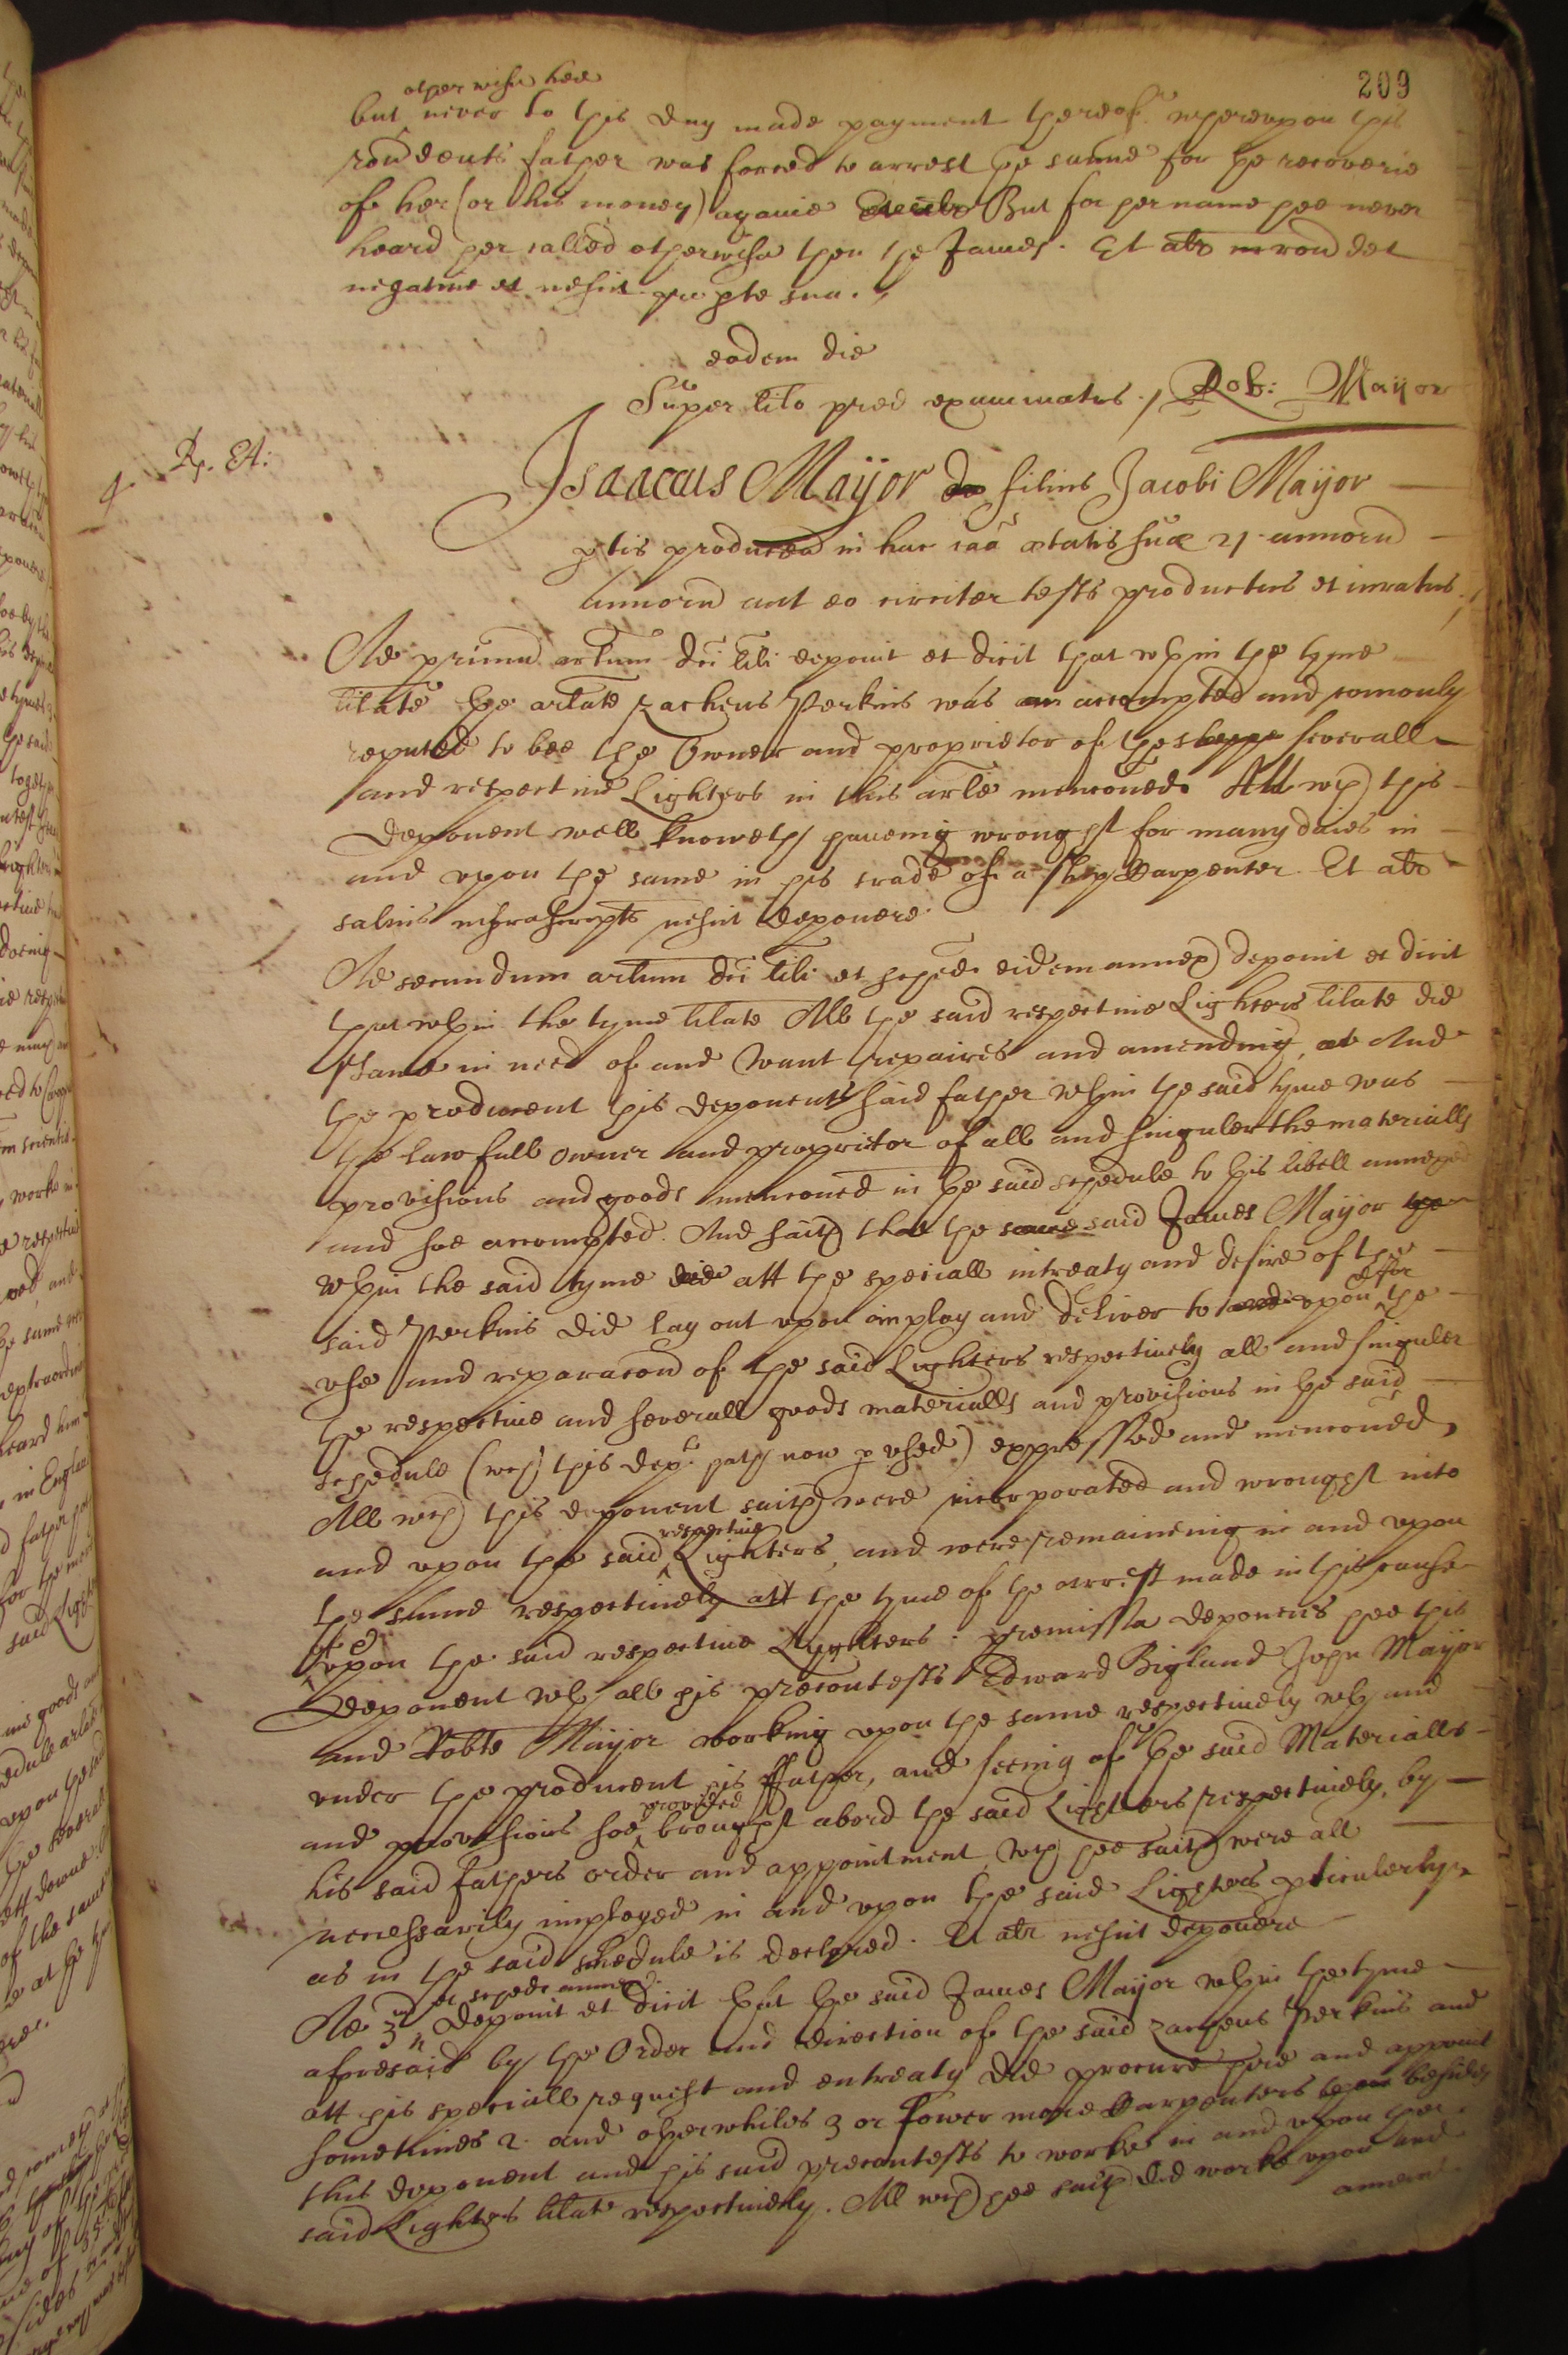 209
otherwise hee
but never to this day made payment thereof. whereupon this
rondents father was forced to arrest the same for the recoverie
of her (or his money) againe But for her name hee never
heard her called otherwise then the James. Et alr rondet
negative et nescit
eodem die
Super lilo pred examinatus./ Rob: Mayor
4 Rp. EA:
Isaacus Mayor filius Jacobi Mayor
ptis producen in hac caa ætatis suæ 21 annoru
annoru aut eo circiter testis productus et iuratus./
Ad primu arlum dci lili deponit et dicit that wthin the tyme
lilate the arlate Zacheus Perkins was accompted and comonly
reputed to bee the Owner and proprietor of the severall
and respective Lighters in this arle menconed. All wch this
deponent well knoweth haveing wrought for many daies in
and upon the same in his trade of a Shipp Carpenter. Et alr
salvis infrascripts nescit deponere.
Ad secundum arlum dci lili et sched eidem annex deponit et dicit
that wthin the tyme lilate All the said respective Lighters lilate did
stand in need of and want repaires and amending, And
the producent this deponents said father wthin the said tyme was
the lawfull owner and proprietor of all and singuler the materialls
provisions and goods menconed in the said schedule to this libell annexed
and soe accompted. And saith that the said James Mayor
wthin the said tyme att the speciall intreaty and desire of the
said Perkins did lay out upon imploy and deliver to upon & for the
use and reparacon of the said Lighters respectively all and singuler
the respective and severall goods materialls and provisions in the said
schedule (wch this dept hath now p used) expressed and menconed,
All wch this deponent saith were incorporated and wrought into
and upon the said respective Lighters, and were remaineing in and upon
the same respectively att the tyme of the arrest made in this cause
upon the said respective Lyghters. premissa deponens hee this
deponent wth all his precontests Edward Bigland John Mayor
and Robte Mayor working upon the same respectively wth and
under the producent his ffather, and seeing of the said Materialls
and provisions soe provided brought abord the said Lighters respectively, by
his said fathers order and appointment, wch hee saith were all
necessarily imployed in and upon the said Lighters pticulerly
as in the said schedule is declared. Et alr nescit deponere
Ad 3um et schede annex. deponit et dicit that the said James Mayor wthin the tyme
aforesaid by the Order and direction of the said Zacheus Perkins and
att his speciall request and entreaty did procure hire and appoint
sometimes 2. and otherwhiles 3 or fower more Carpenters besides
this deponent and his said precontests to worke in and upon the
said Lighters lilat respectively. All wch hee saith did worke upon and
amend